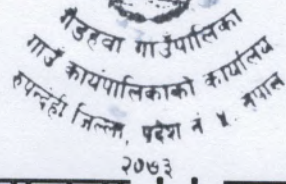 गैडहवा गाउँपालिका
गाउँ कार्यपालिकाको कार्यालय
रुपन्देही जिल्ला, प्रदेश नं ५ नेपाल
२०७३